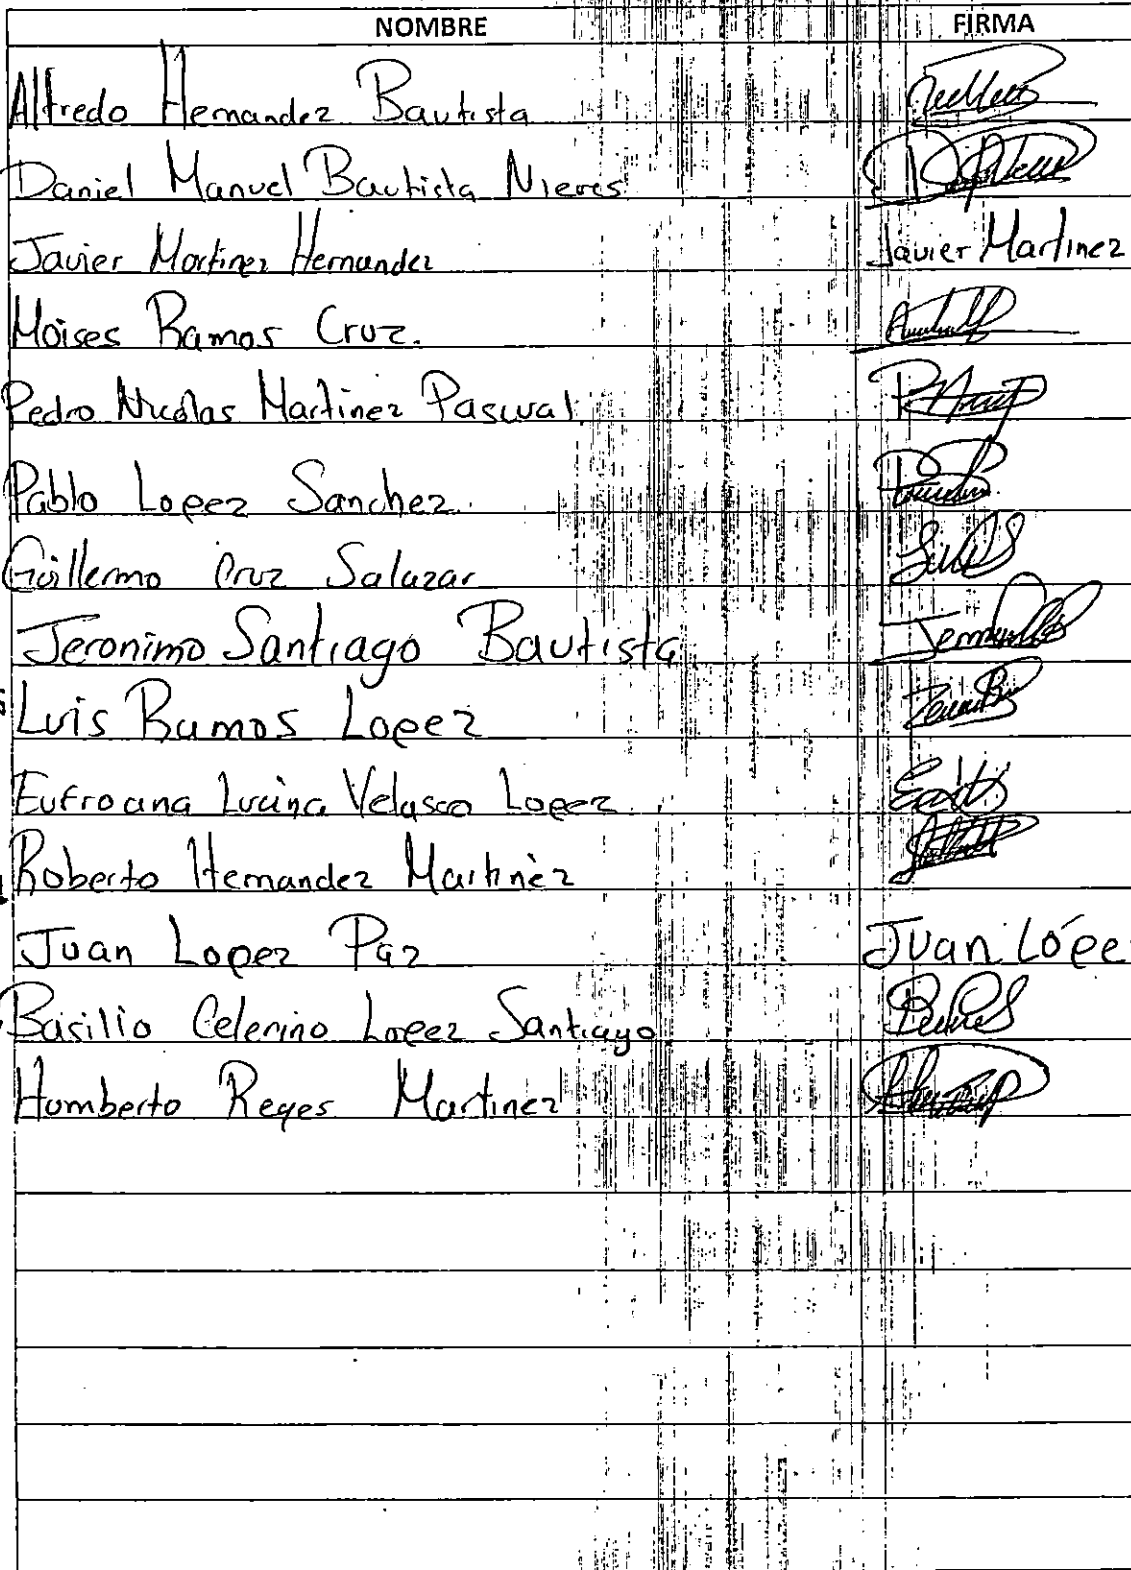 NOMBRE FIRMA
Alfredo Hernandez Bautista
Daniel Manuel Bautista Nieves
Javier Martinez Hernandez Javier Martinez
Moises Ramos Cruz.
Pedro Nicolas Martinez Pascual
Pablo Lopez Sanchez.
Guillermo Cruz Salazar
Jeronimo Santiago Bautista
Luis Ramos Lopez
Lucina Velasco Lopez
Roberto Hernandez Martinez
Juan Lopez Paz Juan Lópe
Basilio Celerino Lopez Santiago
Humberto Reyes Martinez